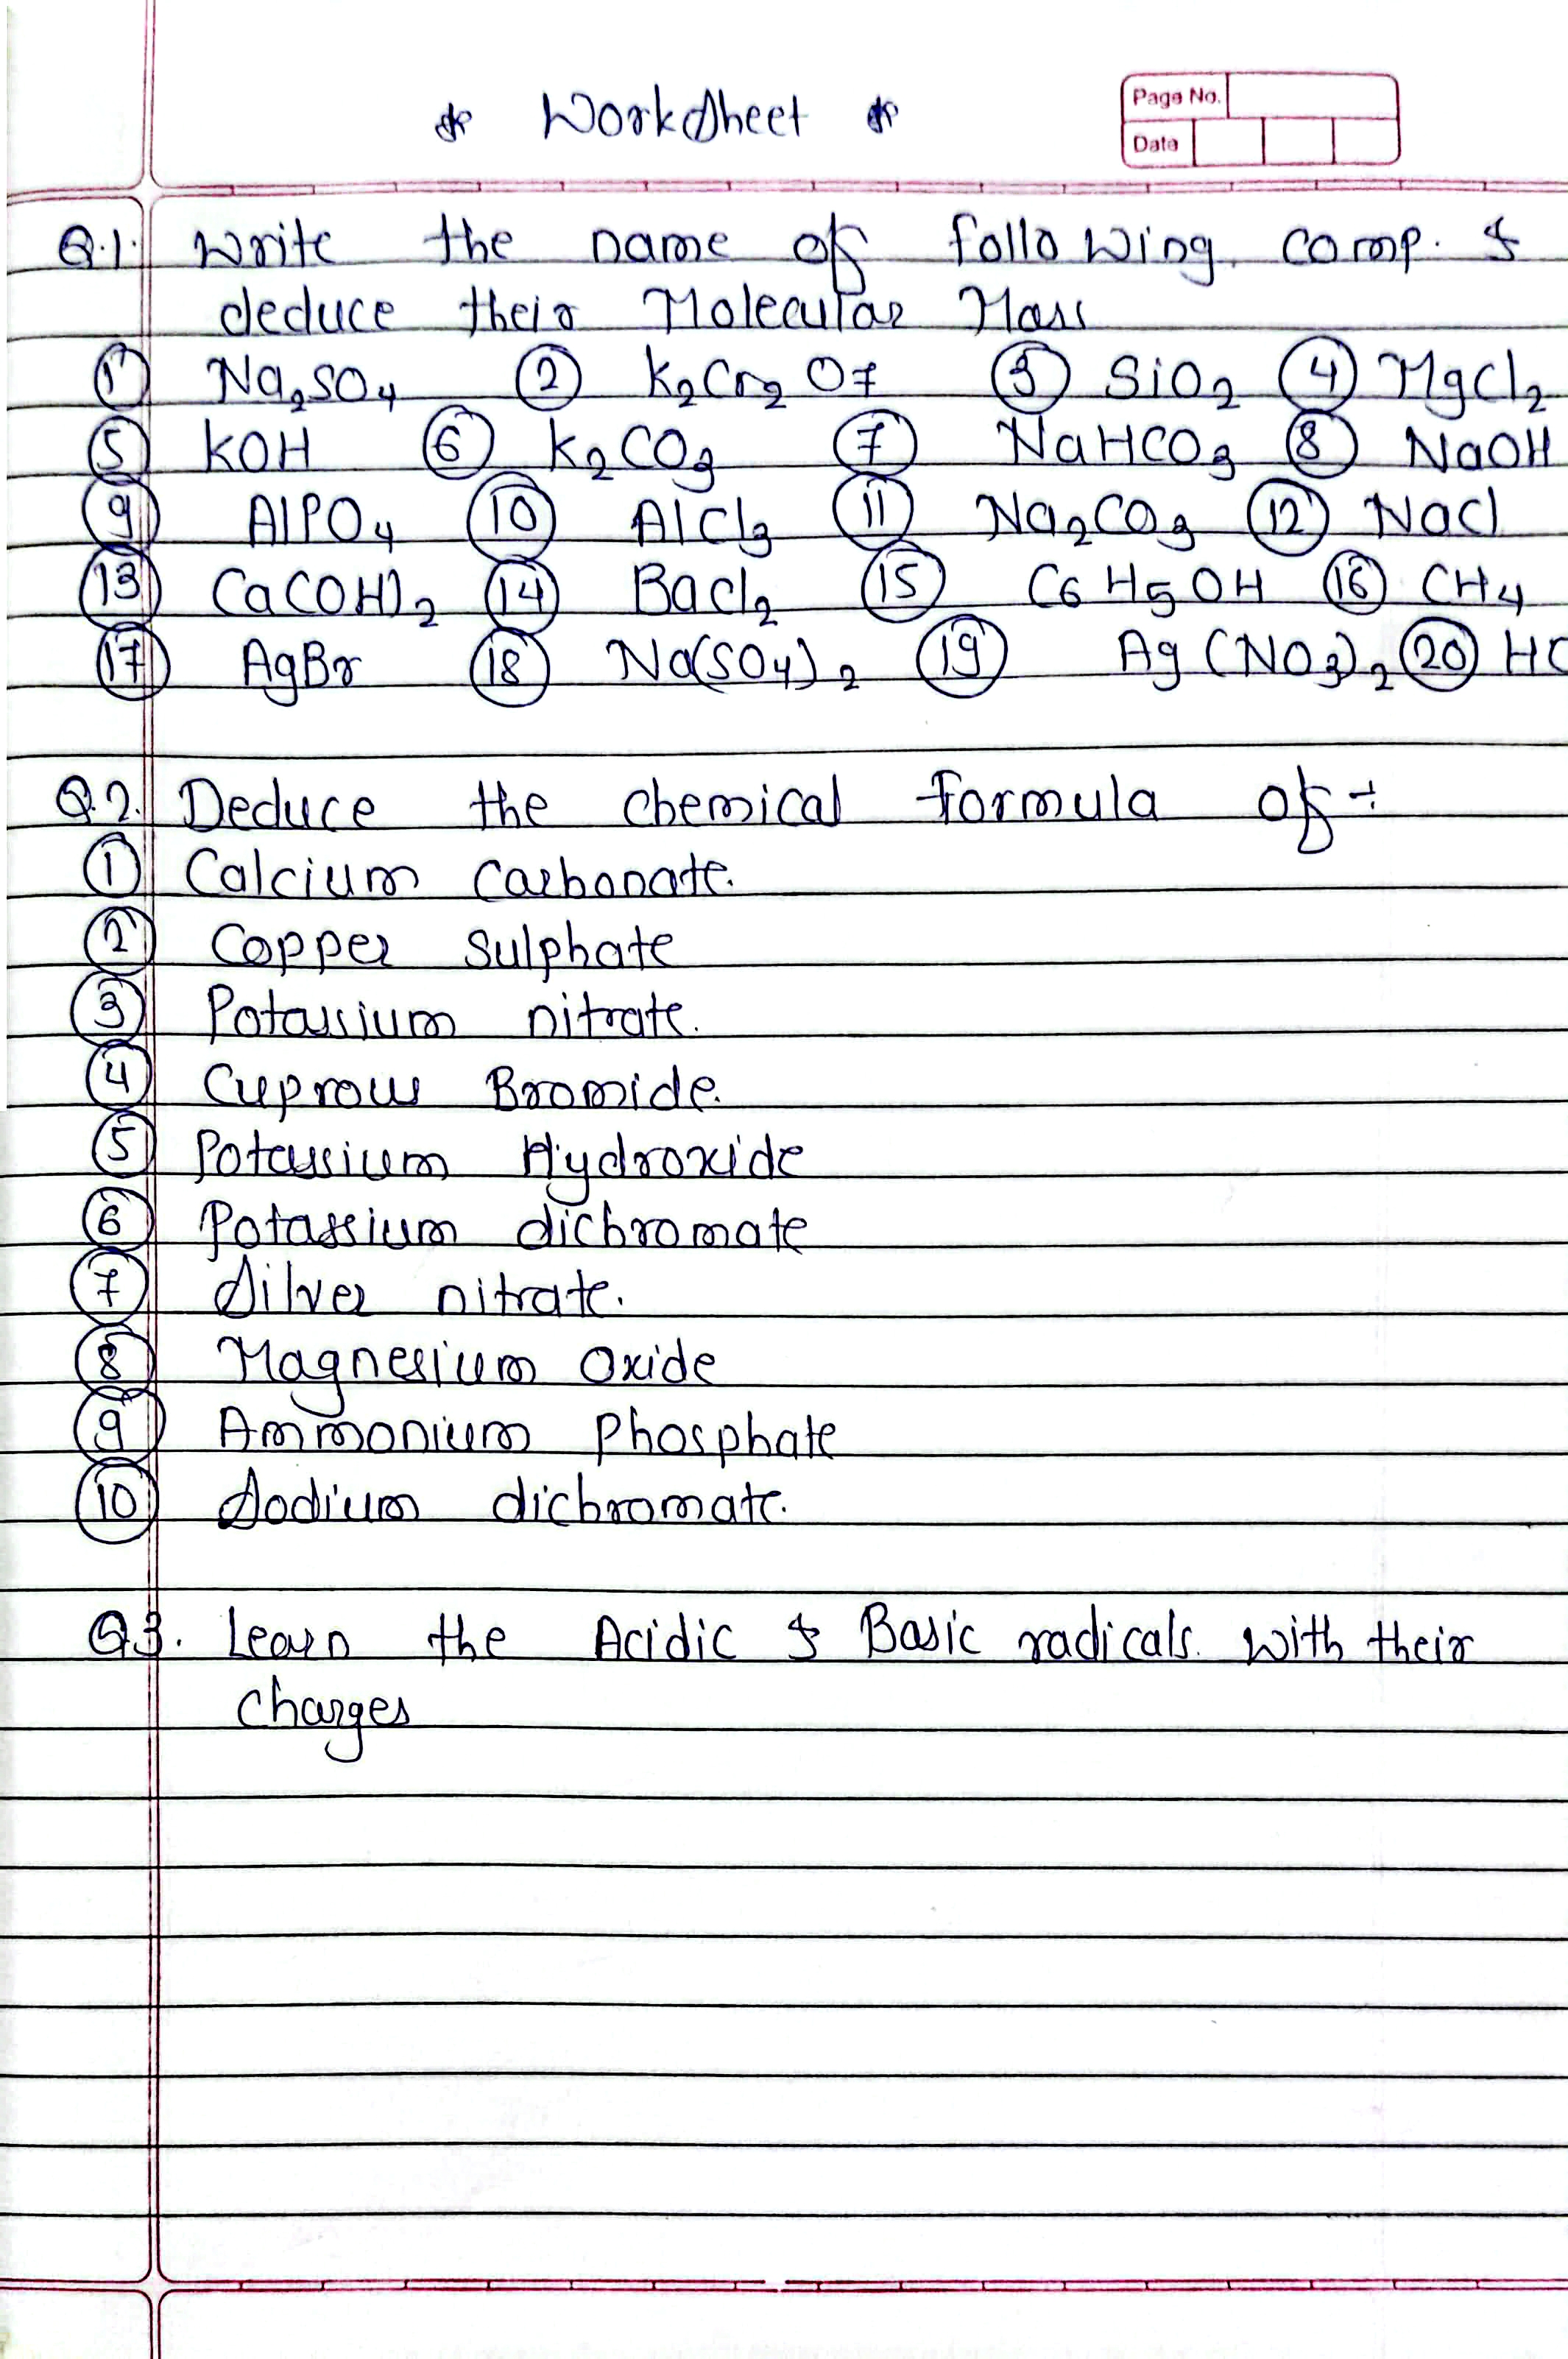 * Worksheet *
Page No.
Date
Q.1. Write the name of following comp. &
deduce their Molecular Mass
① Na₂SO₄ ② K₂Cr₂O7 ③ SiO₂ ④ MgCl₂
⑤ KOH ⑥ K₂CO₃ ⑦ NaHCO₃ ⑧ NaOH
⑨ AlPO₄ ⑩ AlCl₃ ⑪ Na₂CO₃ ⑫ NaCl
⑬ Ca(OH)₂ ⑭ BaCl₂ ⑮ C6H5OH ⑯ CH₄
⑰ AgBr ⑱ Na(SO₄)₂ ⑲ Ag(NO₃)₂ ⑳ HC
Q.2. Deduce the chemical formula of :-
① Calcium carbonate.
② Copper sulphate
③ Potassium nitrate.
④ Cuprous Bromide.
⑤ Potassium Hydroxide
⑥ Potassium dichromate
⑦ Silver nitrate.
⑧ Magnesium oxide
⑨ Ammonium phosphate
⑩ Sodium dichromate.
Q3. Learn the Acidic & Basic radicals. with their
charges